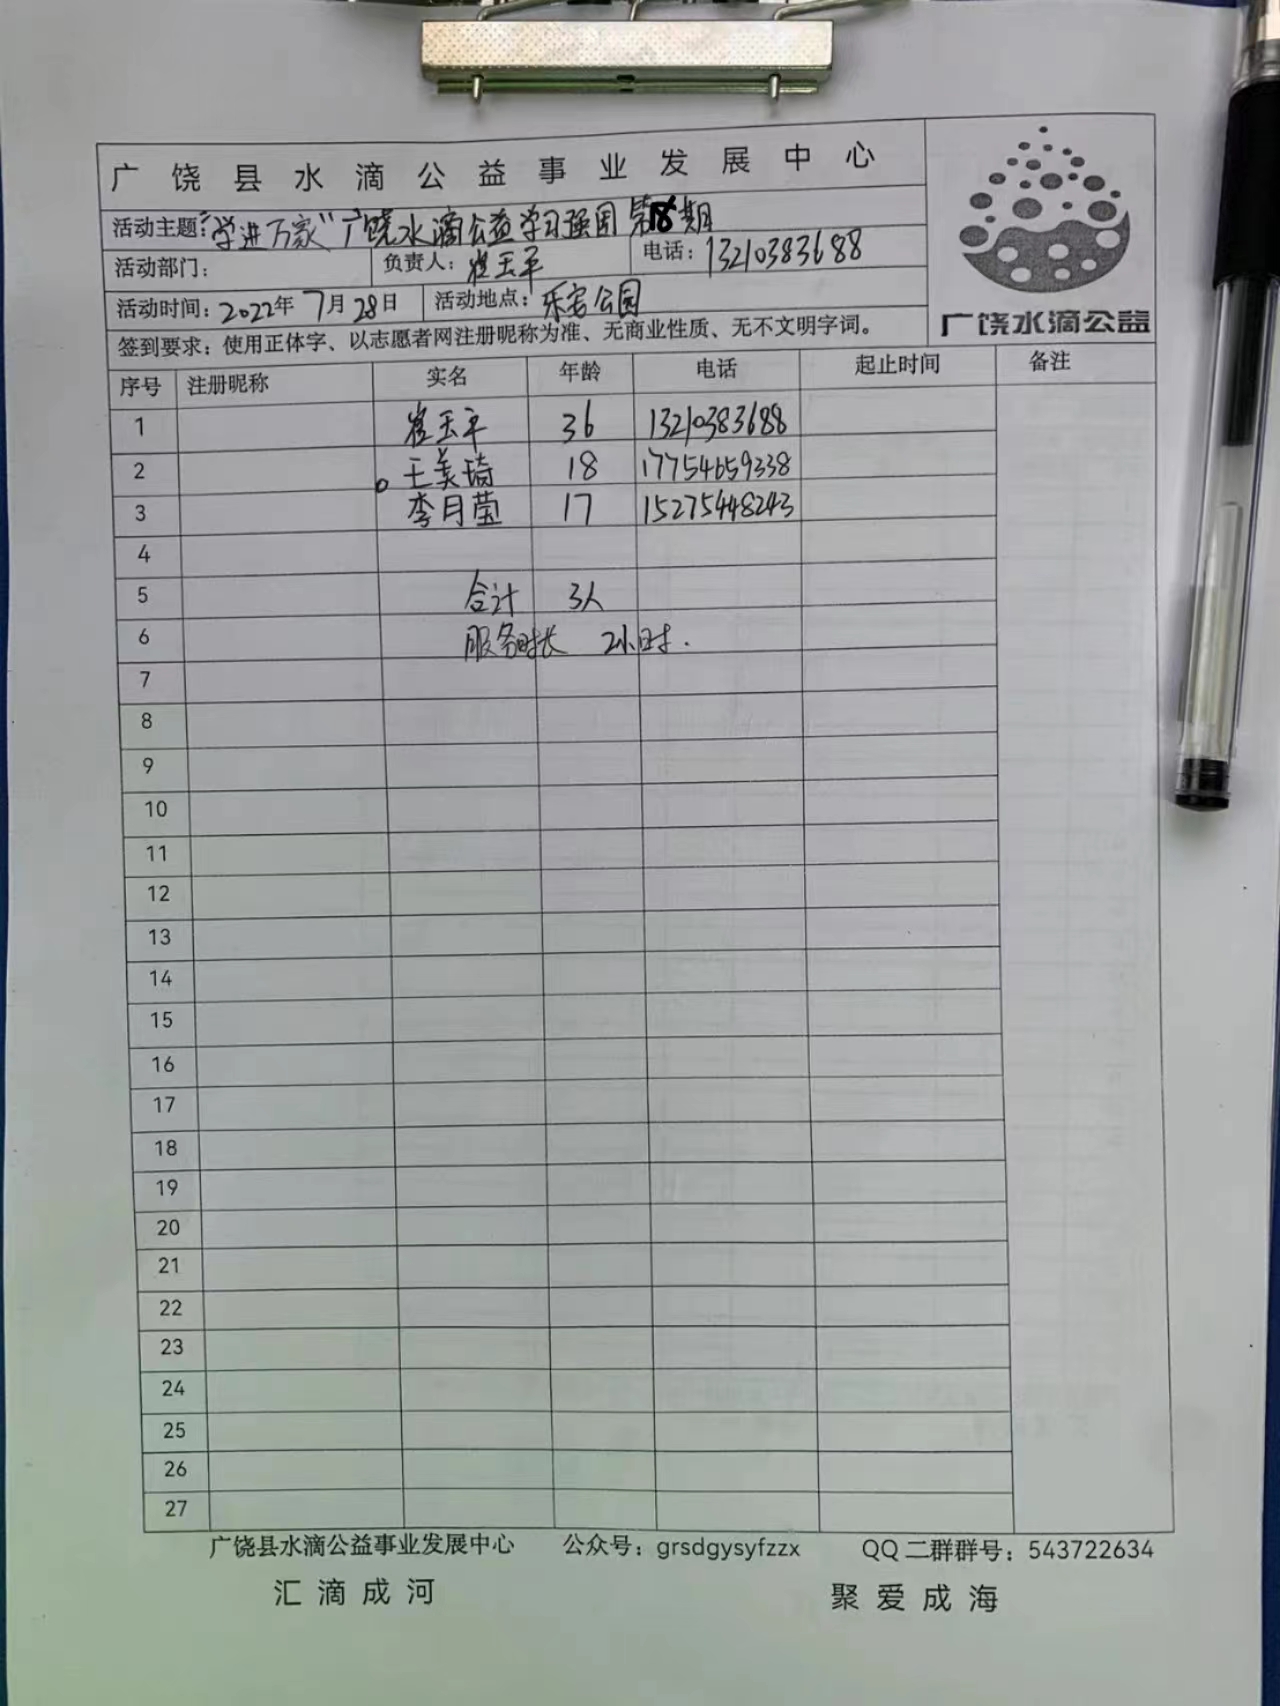 广饶县水滴公益事业发展中心
活动主题:"学进万家"广饶水滴公益学习强国第18期
活动部门: 负责人: 崔玉平 电话: 13210383688
活动时间: 2022年 7月28日 活动地点: 乐安公园
广饶水滴公益
签到要求: 使用正体字、以志愿者网注册昵称为准、无商业性质、无不文明字词。
序号 注册昵称 实名 年龄 电话 起止时间 备注
1 崔玉平 36 13210383688
2 王美琦 18 17754659338
3 李月莹 17 15275448243
4
5 合计 3人
6 服务时长 2小时.
7
8
9
10
11
12
13
14
15
16
17
18
19
20
21
22
23
24
25
26
27
广饶县水滴公益事业发展中心 公众号: grsdgysyfzzx QQ二群群号: 543722634
汇滴成河 聚爱成海